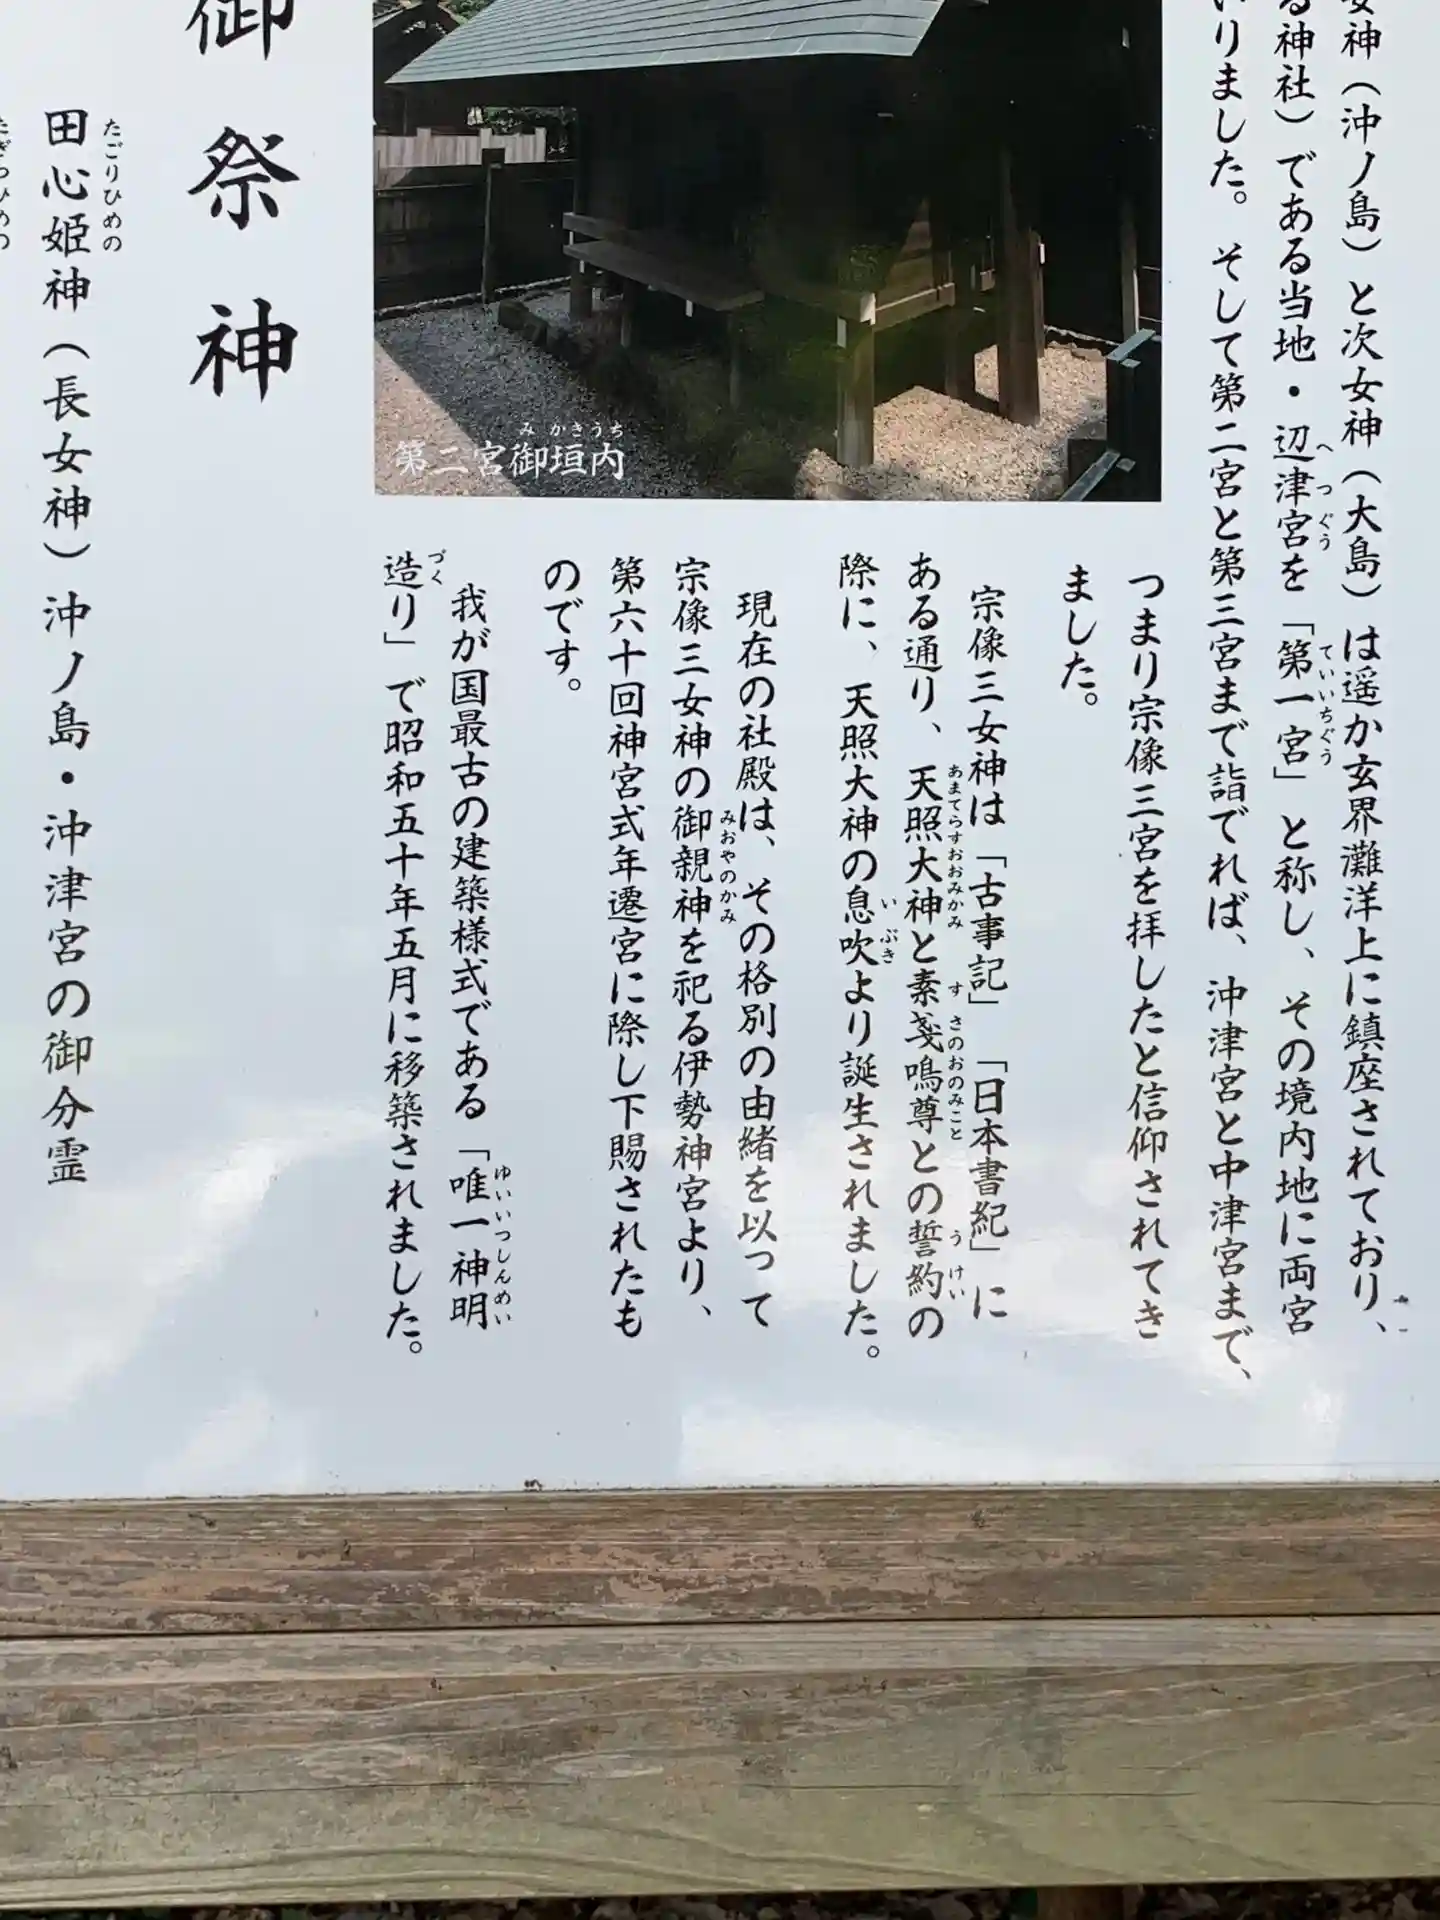 女神（沖ノ島）と次女神（大島）は遥か玄界灘洋上に鎮座されており、
る神社）である当地・辺津宮を「第一宮」と称し、その境内地に両宮
いりました。そして第二宮と第三宮まで詣でれば、沖津宮と中津宮まで、
つまり宗像三宮を拝したと信仰されてき
ました。
宗像三女神は「古事記」「日本書紀」に
ある通り、天照大神と素戔嗚尊との誓約の
際に、天照大神の息吹より誕生されました。
現在の社殿は、その格別の由緒を以って
宗像三女神の御親神を祀る伊勢神宮より、
第六十回神宮式年遷宮に際し下賜されたも
のです。
我が国最古の建築様式である「唯一神明
造り」で昭和五十年五月に移築されました。
第二宮御垣内
御祭神
田心姫神（長女神）沖ノ島・沖津宮の御分霊